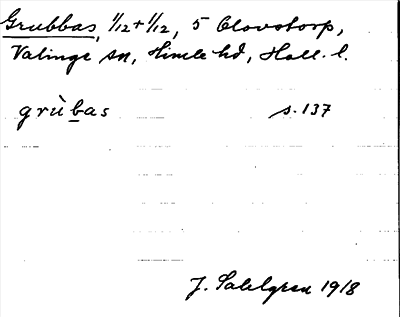 Grubbas, 1/12+1/12, 5 Olovstorp,
Valinge sn, Himle hd, Hall. l.
grùbas s. 137
J. Sahlgren 1918